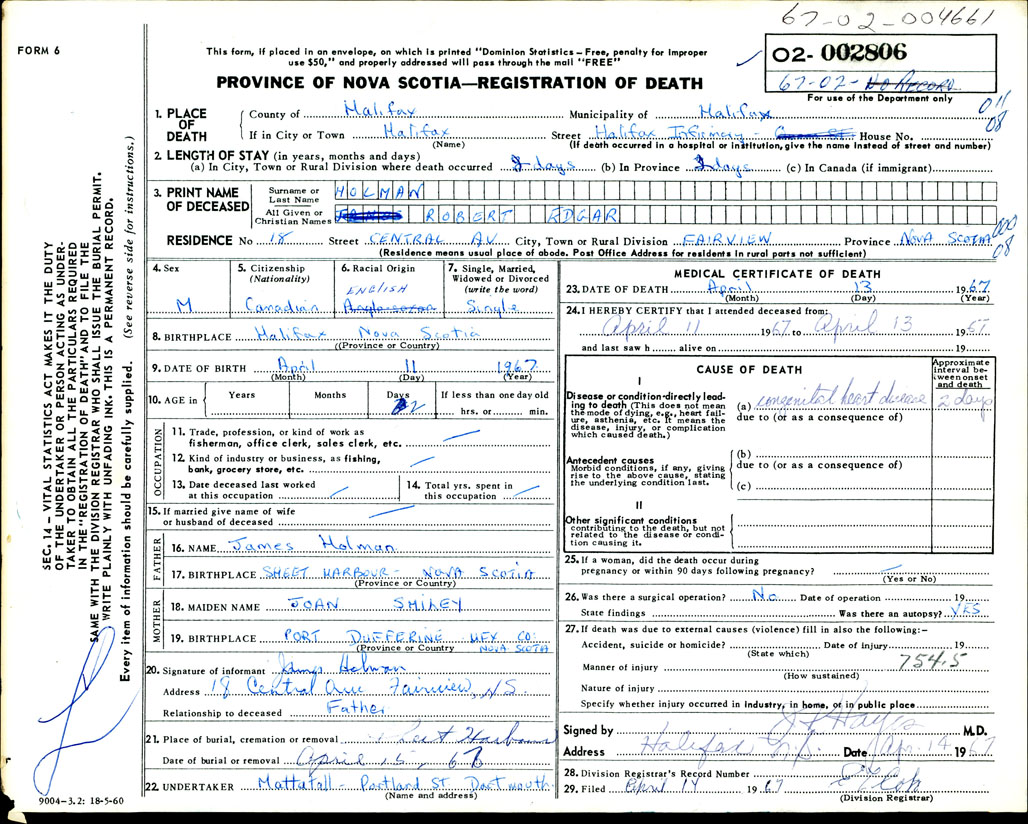 67-02-004661
FORM 6
This form, if placed in an envelope, on which is printed "Dominion Statistics – Free, penalty for improper
use $50," and properly addressed will pass through the mail "FREE"
02- 002806
67-02- No Record
For use of the Department only
PROVINCE OF NOVA SCOTIA—REGISTRATION OF DEATH
011
08
1. PLACE OF DEATH
County of Halifax Municipality of Halifax
If in City or Town Halifax Street Halifax Infirmary - House No.
(Name) (If death occurred in a hospital or institution, give the name instead of street and number)
2. LENGTH OF STAY (in years, months and days)
(a) In City, Town or Rural Division where death occurred 2 days (b) In Province 2 days (c) In Canada (if immigrant)
3. PRINT NAME OF DECEASED
Surname or Last Name HOLMAN
All Given or Christian Names ROBERT EDGAR
000
08
RESIDENCE No 18 Street CENTRAL AV City, Town or Rural Division FAIRVIEW Province NOVA SCOTIA
(Residence means usual place of abode. Post Office Address for residents in rural parts not sufficient)
4. Sex
M
5. Citizenship
(Nationality)
Canadian
6. Racial Origin
ENGLISH
Anglo-saxon
7. Single, Married,
Widowed or Divorced
(write the word)
Single
8. BIRTHPLACE Halifax Nova Scotia
((Province or Country)
9. DATE OF BIRTH April 11 1967
(Month) (Day) (Year)
10. AGE in Years Months Days 2 If less than one day old
hrs. or min.
OCCUPATION
11. Trade, profession, or kind of work as
fisherman, office clerk, sales clerk, etc.
12. Kind of industry or business, as fishing,
bank, grocery store, etc.
13. Date deceased last worked
at this occupation
14. Total yrs. spent in
this occupation
15. If married give name of wife
or husband of deceased
FATHER
16. NAME James Holman
17. BIRTHPLACE SHEET HARBOUR - NOVA SCOTIA
(Province or Country)
MOTHER
18. MAIDEN NAME JOAN SMILEY
19. BIRTHPLACE PORT DUFFERINE HFX CO.
(Province or Country) NOVA SCOTIA
20. Signature of informant James Holman
Address 18 Central Ave Fairview, N.S.
Relationship to deceased Father
21. Place of burial, cremation or removal Sheet Harbour
Date of burial or removal April 15, 67
22. UNDERTAKER Mattatall - Portland ST. Dartmouth
(Name and address)
MEDICAL CERTIFICATE OF DEATH
23. DATE OF DEATH April 13 1967
(Month) (Day) (Year)
24. I HEREBY CERTIFY that I attended deceased from:
April 11 1967 to April 13 1967
and last saw h alive on 19
CAUSE OF DEATH
Approximate
interval be-
tween onset
and death
I
Disease or condition-directly lead-
ing to death (This does not mean
the mode of dying, e.g., heart fail-
ure, asthenia, etc. It means the
disease, injury, or complication
which caused death.)
(a) congenital heart disease 2 days
due to (or as a consequence of)
Antecedent causes
Morbid conditions, if any, giving
rise to the above cause, stating
the underlying condition last.
(b)
due to (or as a consequence of)
(c)
II
Other significant conditions
contributing to the death, but not
related to the disease or condi-
tion causing it.
25. If a woman, did the death occur during
pregnancy or within 90 days following pregnancy?
(Yes or No)
26. Was there a surgical operation? No Date of operation 19
State findings Was there an autopsy? YES
27. If death was due to external causes (violence) fill in also the following:–
Accident, suicide or homicide? Date of injury 19
(State which)
Manner of injury 754.5
(How sustained)
Nature of injury
Specify whether injury occurred in industry, in home, or in public place
Signed by M.D.
Address Halifax N.S. Date Apr. 14 1967
28. Division Registrar's Record Number
29. Filed April 14 1967
(Division Registrar)
SEC. 14 – VITAL STATISTICS ACT MAKES IT THE DUTY
OF THE UNDERTAKER OR PERSON ACTING AS UNDER-
TAKER TO OBTAIN ALL THE PARTICULARS REQUIRED
IN THE "REGISTRATION OF DEATH" AND TO FILE THE
SAME WITH THE DIVISION REGISTRAR WHO SHALL ISSUE THE BURIAL PERMIT.
WRITE PLAINLY WITH UNFADING INK. THIS IS A PERMANENT RECORD.
Every item of information should be carefully supplied. (See reverse side for instructions.)
9004–3.2: 18-5-60